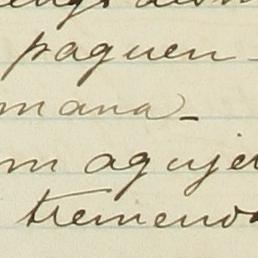 paguen -
mana -
m agujer
tremendo